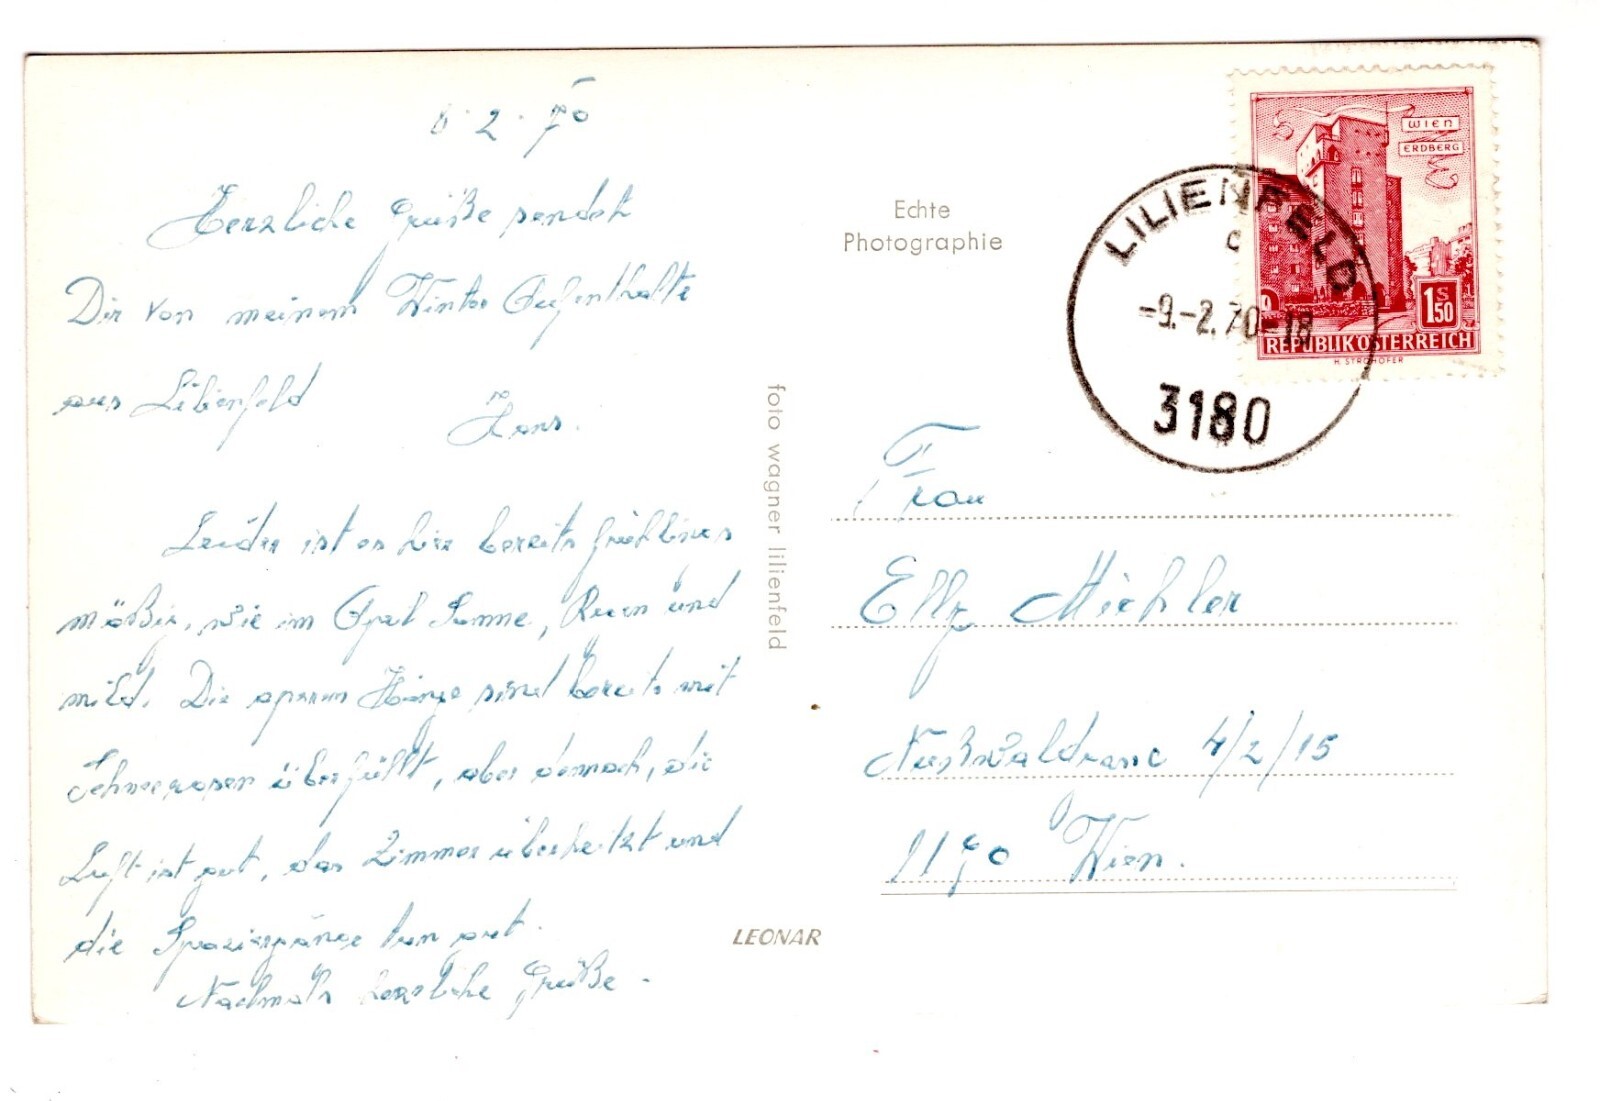 8.2.70
Herzliche Grüße sendet
Dir von meinem Winter Aufenthalte
aus Lilienfeld
Hans.
Leider ist es hier bereits frühlings
mäßig, wie im April Sonne, Regen und
mild. Die aperen Hänge sind bereits mit
Schneerosen überfüllt, aber dennoch, die
Luft ist gut, das Zimmer überheitzt und
die Spaziergänge tun gut.
Nochmals herzliche Grüße.
foto wagner lilienfeld
LEONAR
Echte
Photographie
WIEN
ERDBERG
1 S 50
REPUBLIK ÖSTERREICH
H. STROHOFER
LILIENFELD
c
-9.-2.70-18
3180
Frau
Michler
4/2/15
1190 Wien.